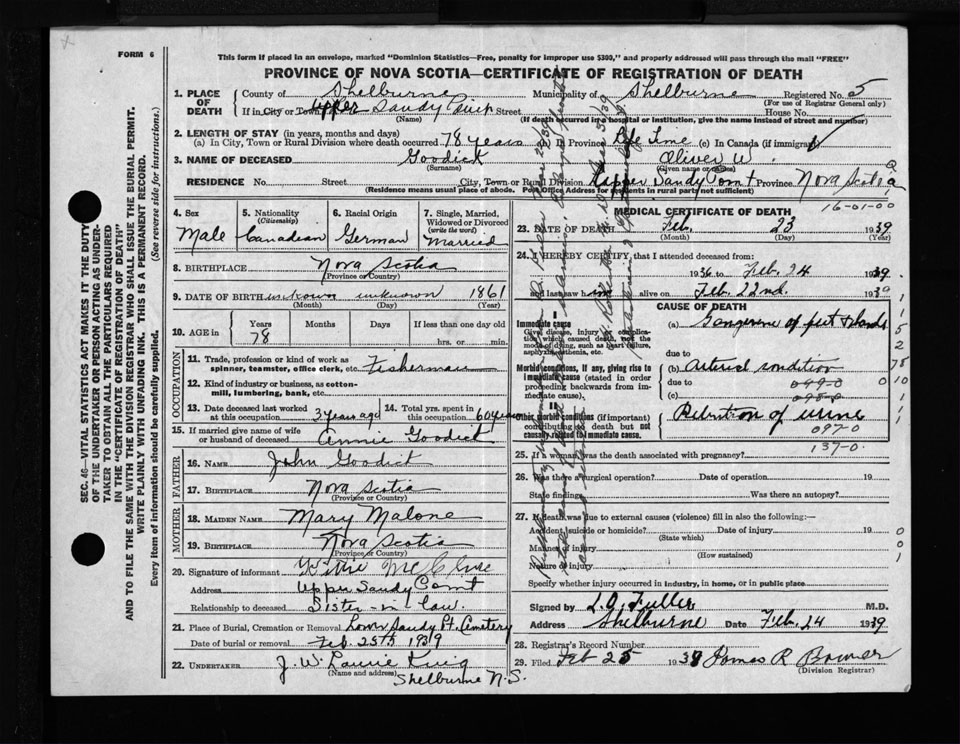 FORM 6
This form if placed in an envelope, marked "Dominion Statistics—Free, penalty for improper use $300," and properly addressed will pass through the mail "FREE"
PROVINCE OF NOVA SCOTIA—CERTIFICATE OF REGISTRATION OF DEATH
1. PLACE OF DEATH
County of Shelburne Municipality of Shelburne Registered No. 5
(For use of Registrar General only)
If in City or Town Upper Sandy Street House No.
(Name) (If death occurred in a hospital or institution, give the name instead of street and number)
2. LENGTH OF STAY (in years, months and days)
(a) In City, Town or Rural Division where death occurred 78 years (b) In Province Life Time (c) In Canada (if immigrant)
3. NAME OF DECEASED Goodick Oliver W.
(Surname) (Given name or names)
RESIDENCE No. Street City, Town or Rural Division Upper Sandy Point Province Nova Scotia
(Residence means usual place of abode. Post Office Address for residents in rural parts not sufficient)
16-01-00
4. Sex Male
5. Nationality (Citizenship) Canadian
6. Racial Origin German
7. Single, Married, Widowed or Divorced (write the word) Married
8. BIRTHPLACE Nova Scotia
(Province or Country)
9. DATE OF BIRTH unknown unknown 1861
(Month) (Day) (Year)
10. AGE in Years Months Days If less than one day old
78 hrs. or min.
OCCUPATION
11. Trade, profession or kind of work as spinner, teamster, office clerk, etc. Fisherman
12. Kind of industry or business, as cotton-mill, lumbering, bank, etc.
13. Date deceased last worked at this occupation 3 years ago
14. Total yrs. spent in this occupation 60 years
15. If married give name of wife or husband of deceased Annie Goodick
FATHER
16. Name John Goodick
17. Birthplace Nova Scotia
(Province or Country)
MOTHER
18. Maiden Name Mary Malone
19. Birthplace Nova Scotia
(Province or Country)
20. Signature of informant
Address Upper Sandy Point
Relationship to deceased Sister-in law.
21. Place of Burial, Cremation or Removal Lower Sandy Pt. Cemetery
Date of burial or removal Feb 25th 1939
22. UNDERTAKER J. W. Laurie King
(Name and address)
Shelburne N.S.
MEDICAL CERTIFICATE OF DEATH
23. DATE OF DEATH Feb. 23 1939
(Month) (Day) (Year)
24. I HEREBY CERTIFY, that I attended deceased from:
1936 to Feb. 24 1939.
and last saw him alive on Feb. 22nd. 1939
CAUSE OF DEATH
I
Immediate cause
Give disease, injury or complication which caused death, not the mode of dying, such as heart failure, asphyxia, asthenia, etc.
(a) Gangrene of feet & hands
due to
Morbid conditions, if any, giving rise to immediate cause (stated in order proceeding backwards from immediate cause).
(b) Arterial condition
due to 099-0
(c) 095-0
II
Other morbid conditions (if important) contributing to death but not causally related to immediate cause.
Retention of urine
097-0
137-0.
25. If a woman, was the death associated with pregnancy?
26. Was there a surgical operation? Date of operation 19
State findings Was there an autopsy?
27. If death was due to external causes (violence) fill in also the following:—
Accident, suicide or homicide? Date of injury 19
(State which)
Manner of injury
(How sustained)
Nature of injury
Specify whether injury occurred in industry, in home, or in public place
Signed by L.O. Fuller M.D.
Address Shelburne Date Feb. 24 1939
28. Registrar's Record Number
29. Filed Feb 25 1939 James R Bower
(Division Registrar)
SEC. 46—VITAL STATISTICS ACT MAKES IT THE DUTY OF THE UNDERTAKER OR PERSON ACTING AS UNDERTAKER TO OBTAIN ALL THE PARTICULARS REQUIRED IN THE "CERTIFICATE OF REGISTRATION OF DEATH" AND TO FILE THE SAME WITH THE DIVISION REGISTRAR WHO SHALL ISSUE THE BURIAL PERMIT.
WRITE PLAINLY WITH UNFADING INK. THIS IS A PERMANENT RECORD.
Every item of information should be carefully supplied. (See reverse side for instructions.)